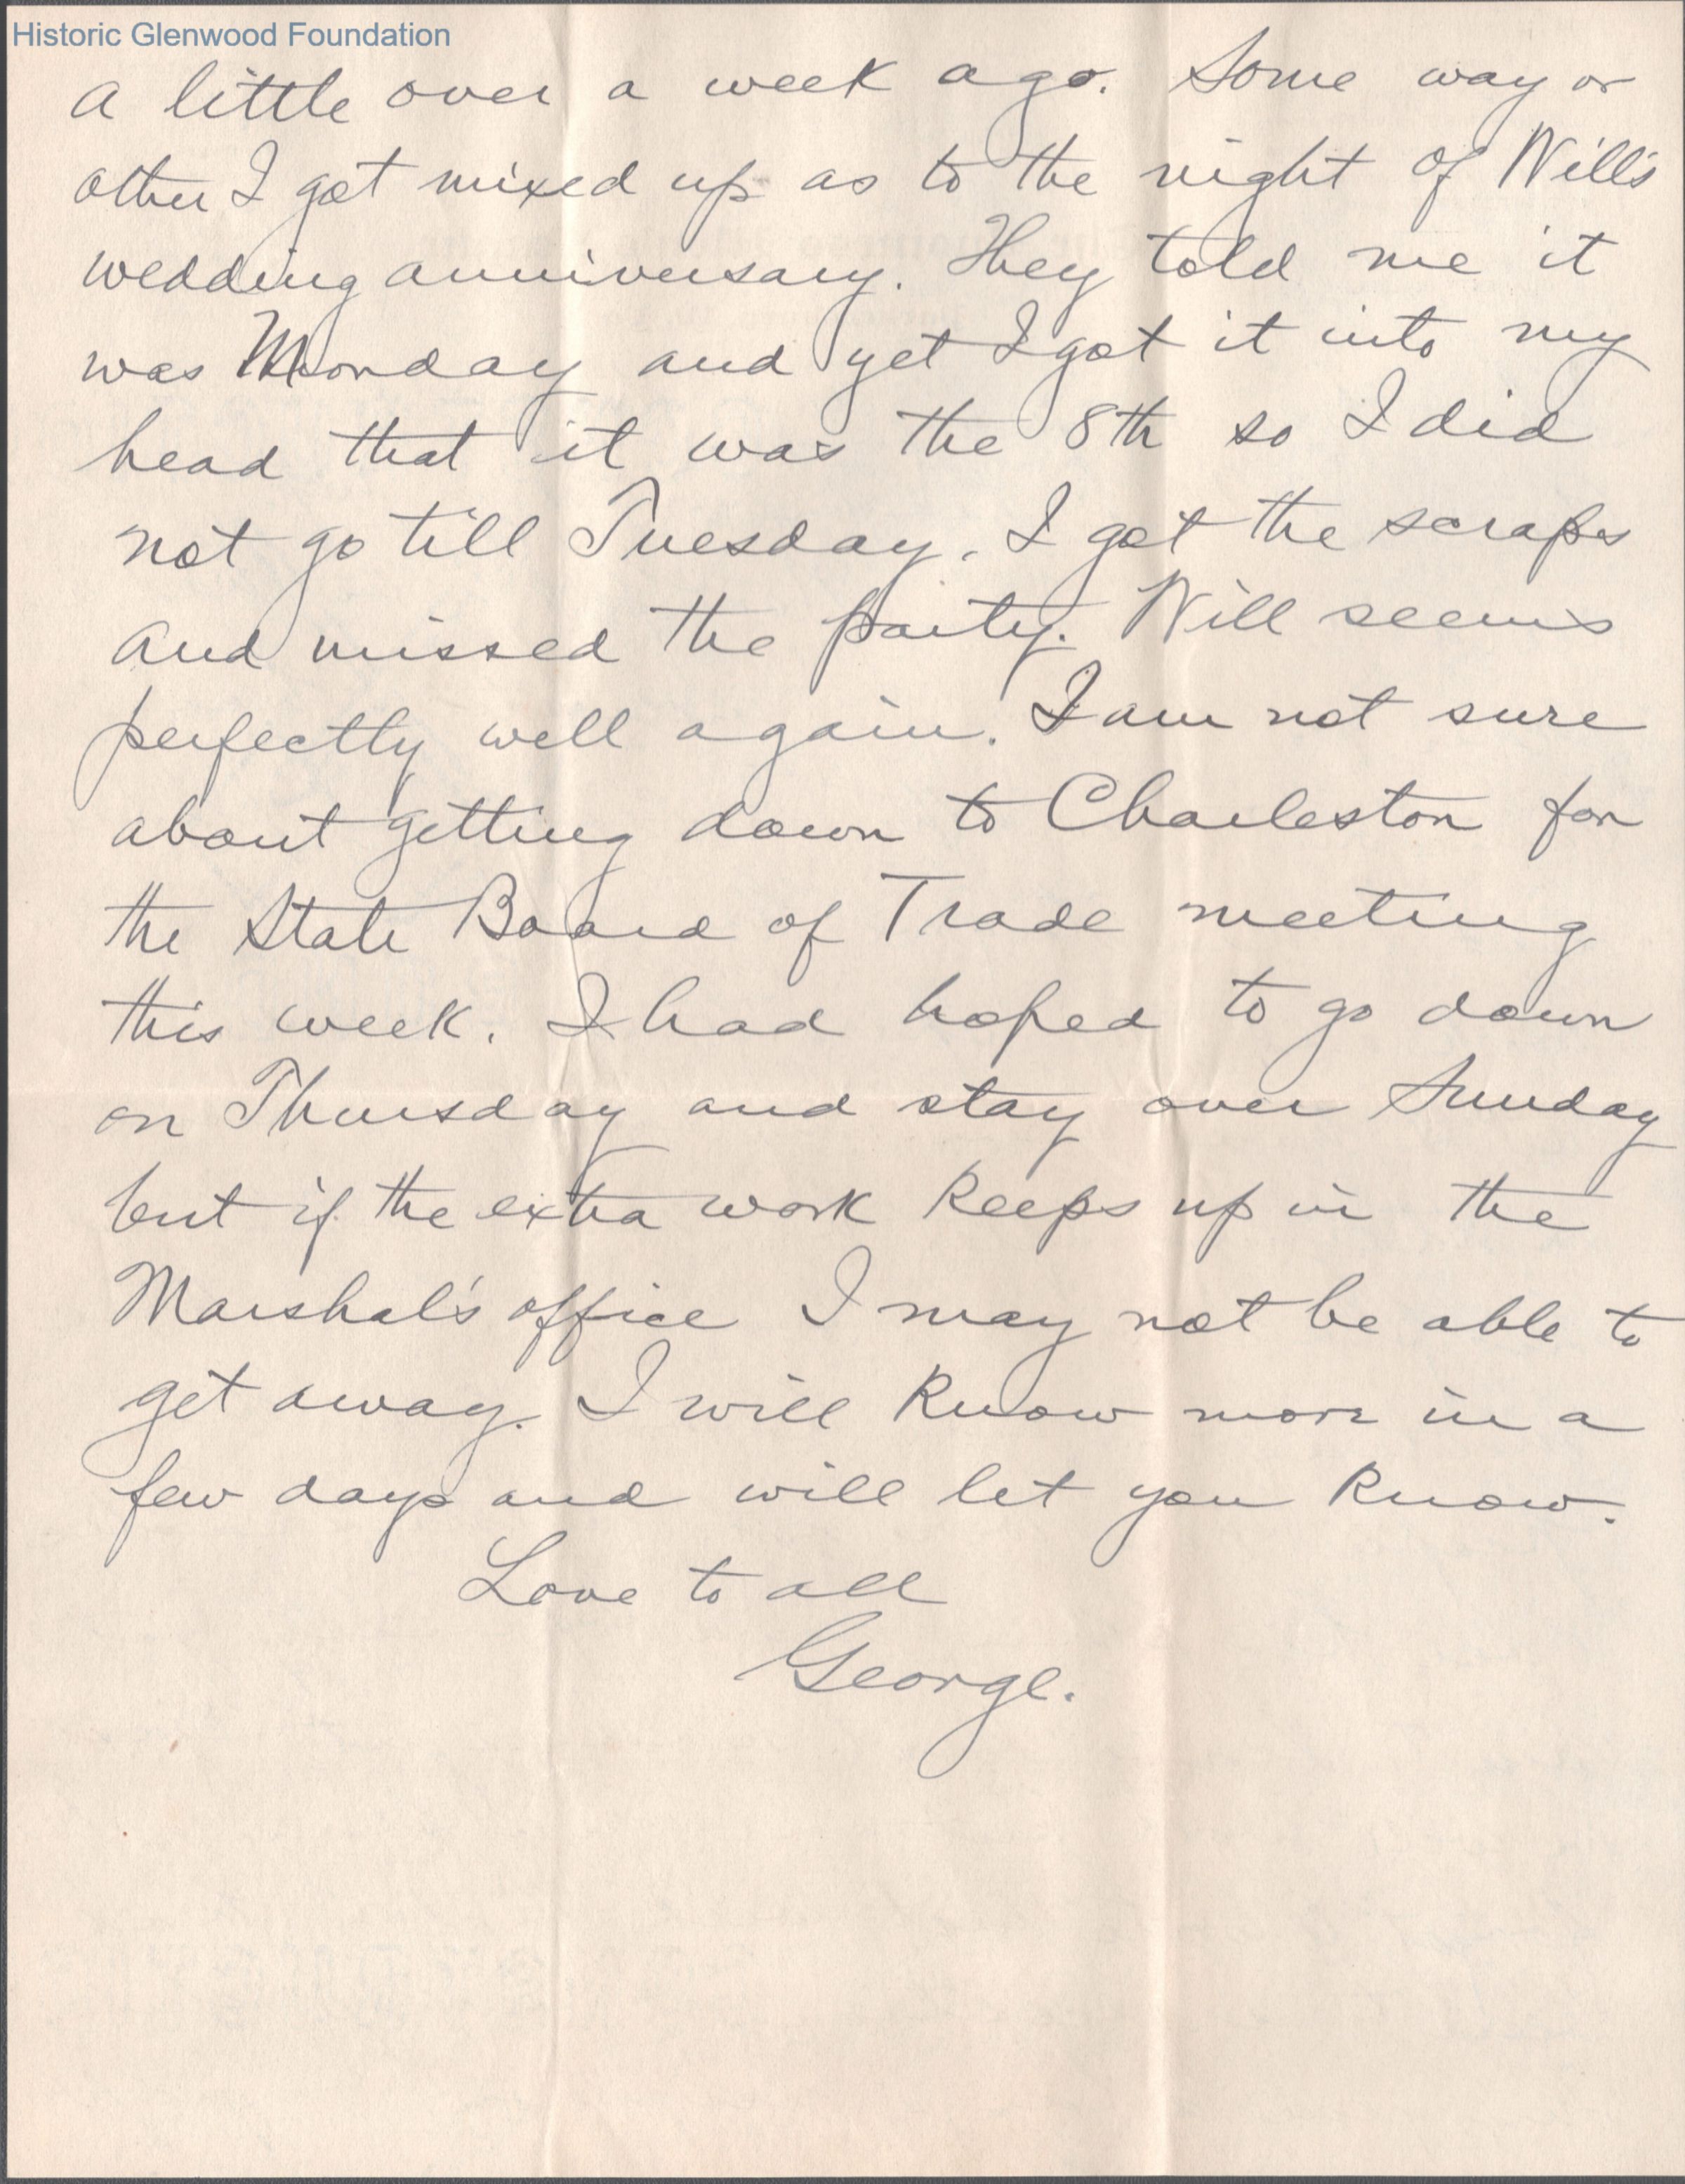 Historic Glenwood Foundation
a little over a week ago. Some way or
other I got mixed up as to the night of Will's
wedding anniversary. They told me it
was Monday and yet I got it into my
head that it was the 8th so I did
not go till Tuesday. I got the scraps
and missed the party. Will seems
perfectly well again. I am not sure
about getting down to Charleston for
the State Board of Trade meeting
this week. I had hoped to go down
on Thursday and stay over Sunday
but if the extra work keeps up in the
Marshal's office I may not be able to
get away. I will know more in a
few days and will let you know.
Love to all
George.